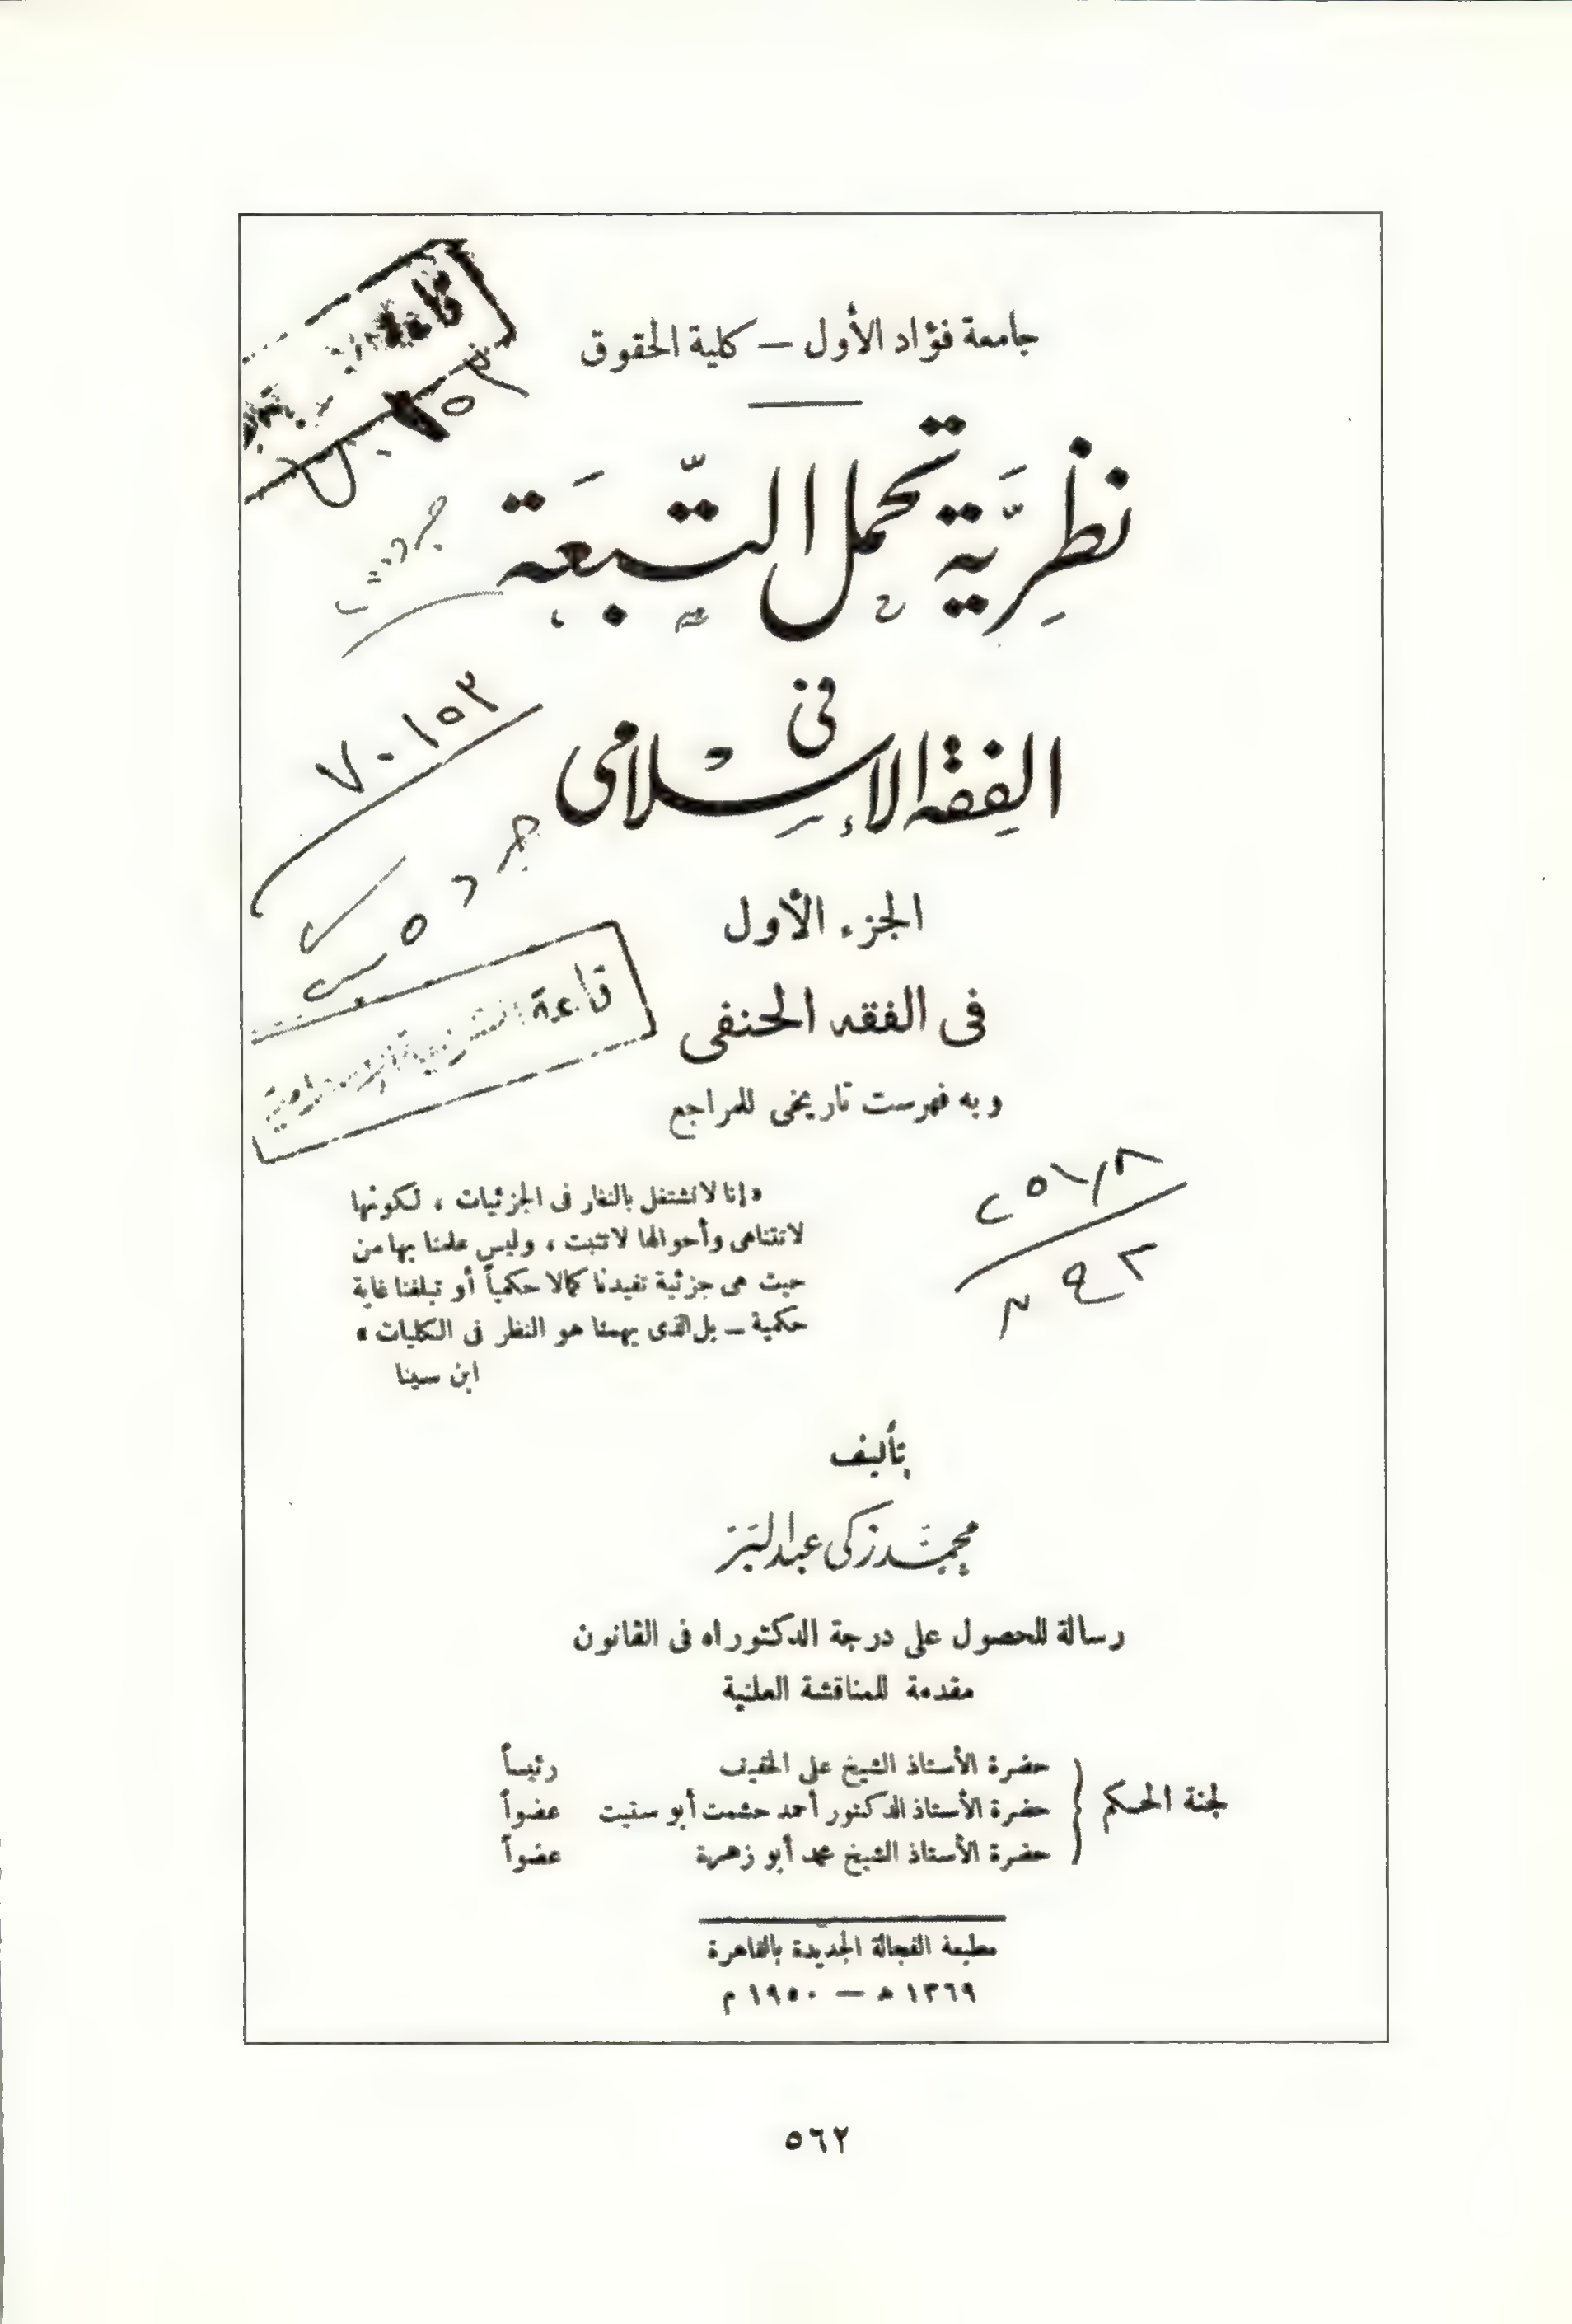 جامعة فؤاد الأول — كلية الحقوق
نظَرِيَّة تحمل التَّبِعَة
فى
الفِقه الإِسْلامى
الجزء الأول
فى الفقه الحنفى
وبه فهرست تاريخى للمراجع
قاعة الشريعة الإسلامية
٧٠١٥٣
«إنا لا نشتغل بالنظر فى الجزئيات ، لكونها
لا تتناهى وأحوالها لا تثبت ، وليس علمنا بها من
حيث هى جزئية تفيدنا كمالا حكمياً أو تبلغنا غاية
حكمية – بل الذى يهمنا هو النظر فى الكليات»
ابن سينا
تأليف
محمد زكى عبد البر
رسالة للحصول على درجة الدكتوراه فى القانون
مقدمة للمناقشة العلنية
لجنة الحكم
حضرة الأستاذ الشيخ على الخفيف رئيساً
حضرة الأستاذ الدكتور أحمد حشمت أبو ستيت عضواً
حضرة الأستاذ الشيخ محمد أبو زهرة عضواً
مطبعة الفجالة الجديدة بالقاهرة
١٣٦٩ ه — ١٩٥٠ م
٥٦٢